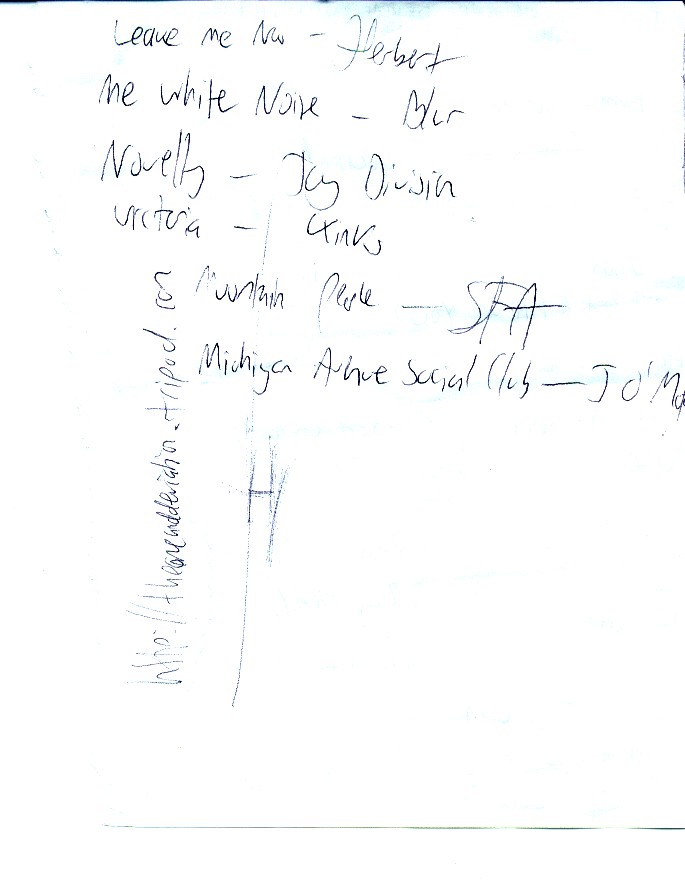 Leave me Now - Herbert
Me White Noise - Blur
Novelty - Joy Division
Victoria - Kinks
Mountain People - SFA
Michigan Avenue Social Club - J O'Ma
http://theoneandd.tripod.com